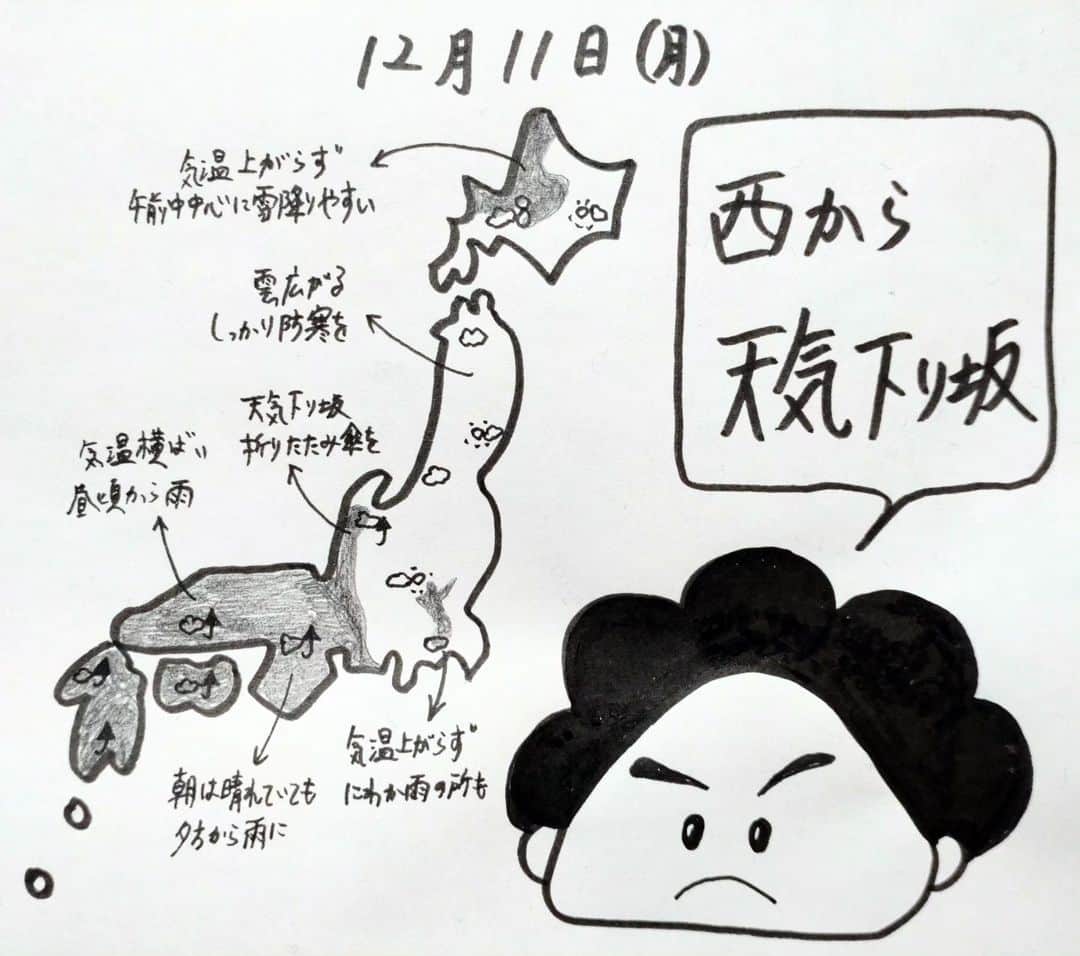 12月11日(月)
西から
天気下り坂
気温上がらず
午前中中心に雪降りやすい
雲広がる
しっかり防寒を
天気下り坂
折りたたみ傘を
気温横ばい
昼頃から雨
気温上がらず
にわか雨の所も
朝は晴れていても
夕方から雨に